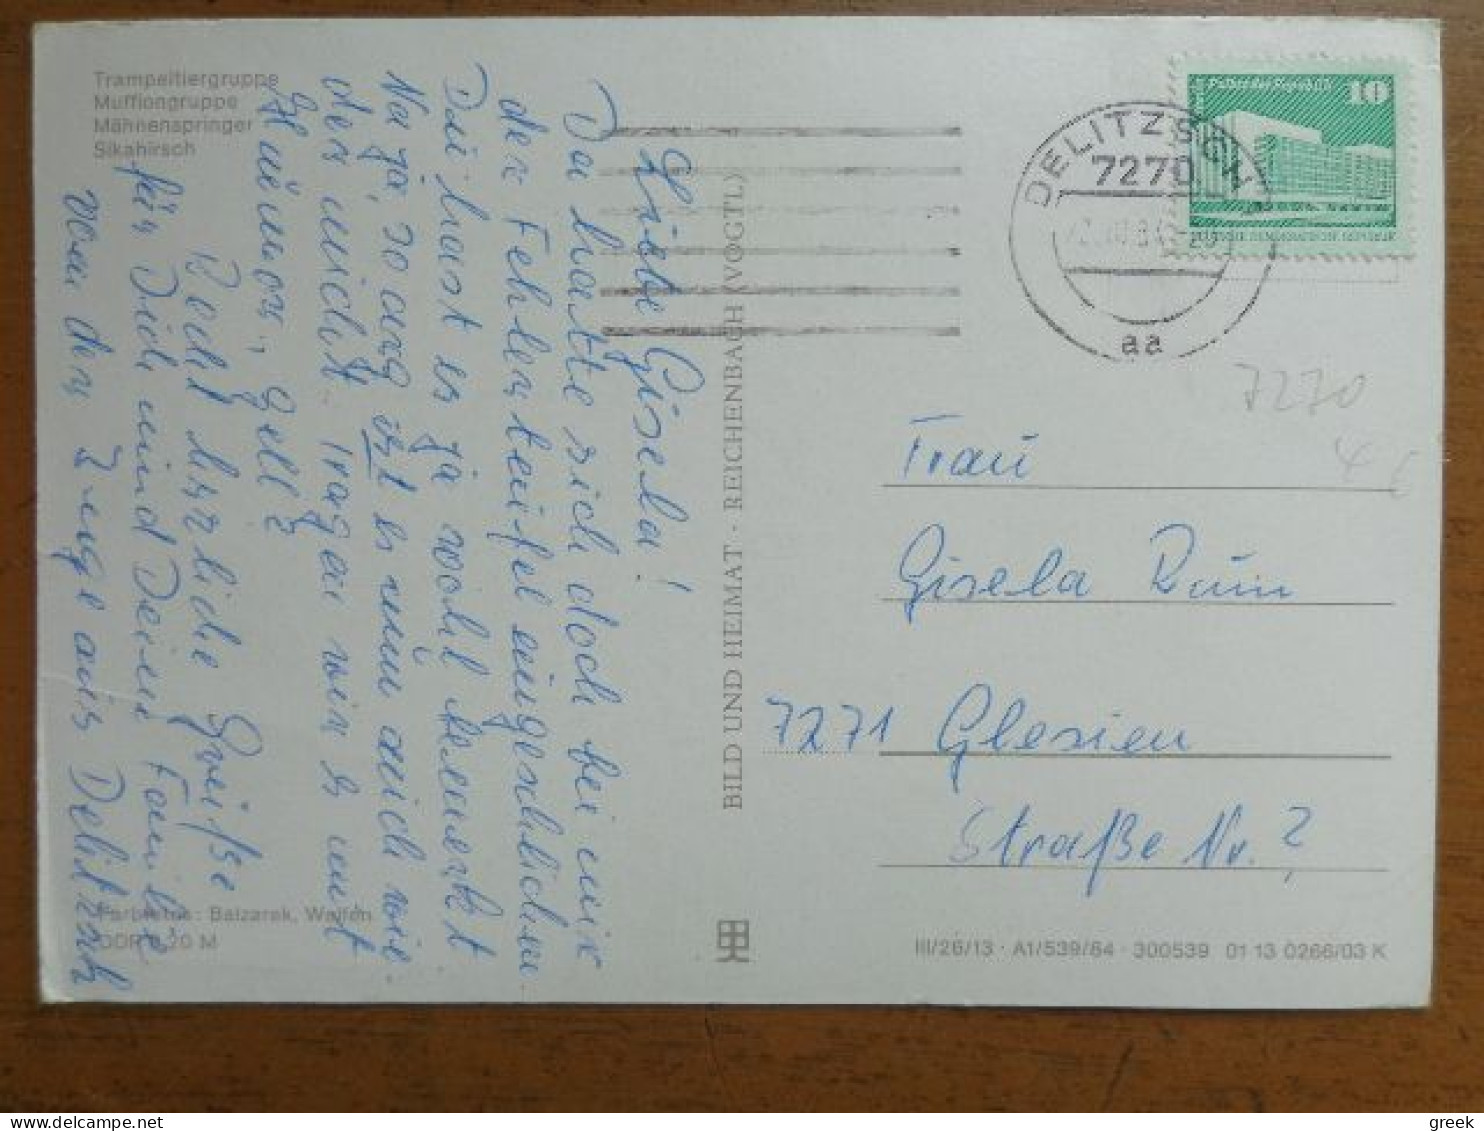 Trampeltiergruppe
Mufflongruppe
Mähnenspringer
Sikahirsch
Liebe Gisela!
Da hatte sich doch bei mir
der Fehlerteufel eingeschlichen.
Du hast es ja wohl bemerkt
Na ja, so arg ist es nun auch wie-
der nicht. Tragen wir's mit
Humor, gell?
Recht herzliche Grüße
für Dich und Deine Familie
von der Inge aus Delitzsch
Farbfotos: Balzarek, Wolfen
DDR 0,20 M
BILD UND HEIMAT · REICHENBACH (VOGTL)
DELITZSCH
7270
aa
Palast der Republik
10
DEUTSCHE DEMOKRATISCHE REPUBLIK
7270
Frau
Gisela
7271 Glesien
Straße Nr. ?
III/26/13 · A1/539/84 · 300539 01 13 0266/03 K
greek